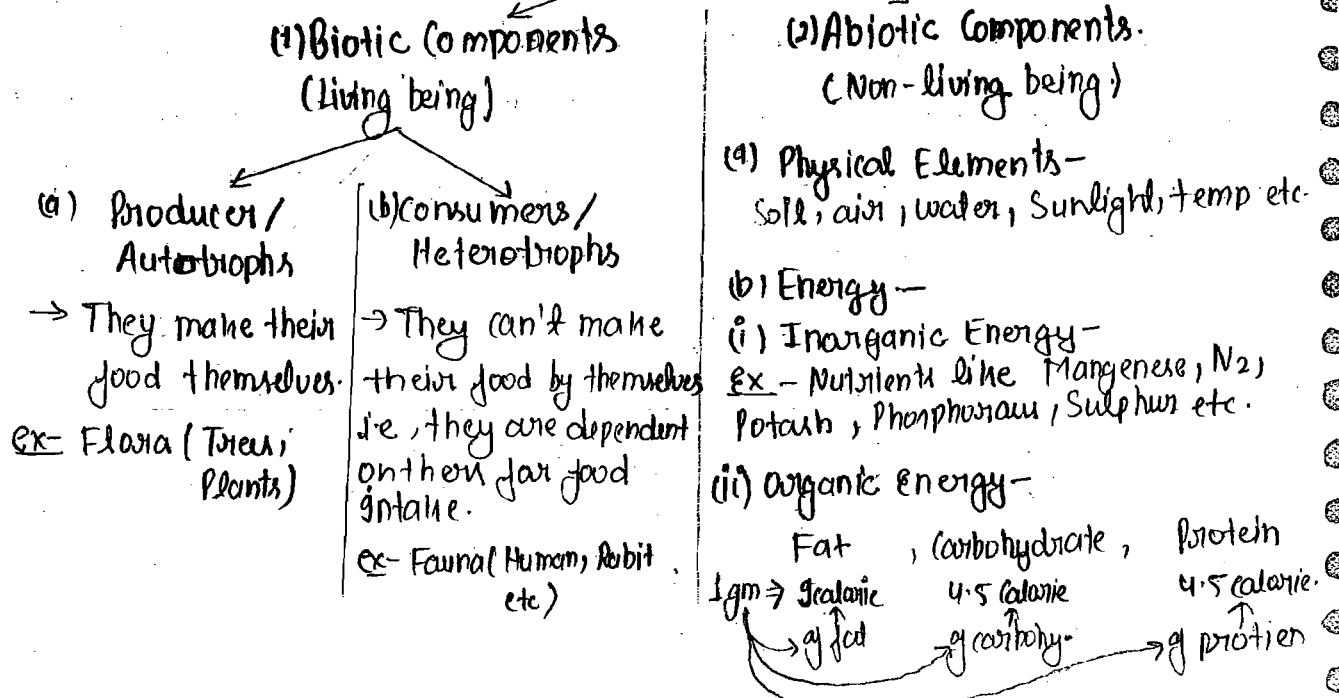 (1) Biotic Components
(Living being)
(a) Producer/
Autotrophs
→ They make their
food themselves.
ex- Flora (Trees,
Plants)
(b) Consumers/
Heterotrophs
→ They can't make
their food by themselves
i.e, they are dependent
on then for food
intake.
ex- Fauna (Human, Rabit
etc)
(2) Abiotic Components.
(Non-living being)
(a) Physical Elements-
Soil, air, water, Sunlight, temp etc.
(b) Energy-
(i) Inorganic Energy-
Ex - Nutrients like Mangenese, N2,
Potash, Phosphorous, Sulphur etc.
(ii) Organic energy-
Fat, Carbohydrate, Protein
1gm ⇒ 9calorie 4.5 Calorie 4.5 calorie.
of fat of carbohy. of protien